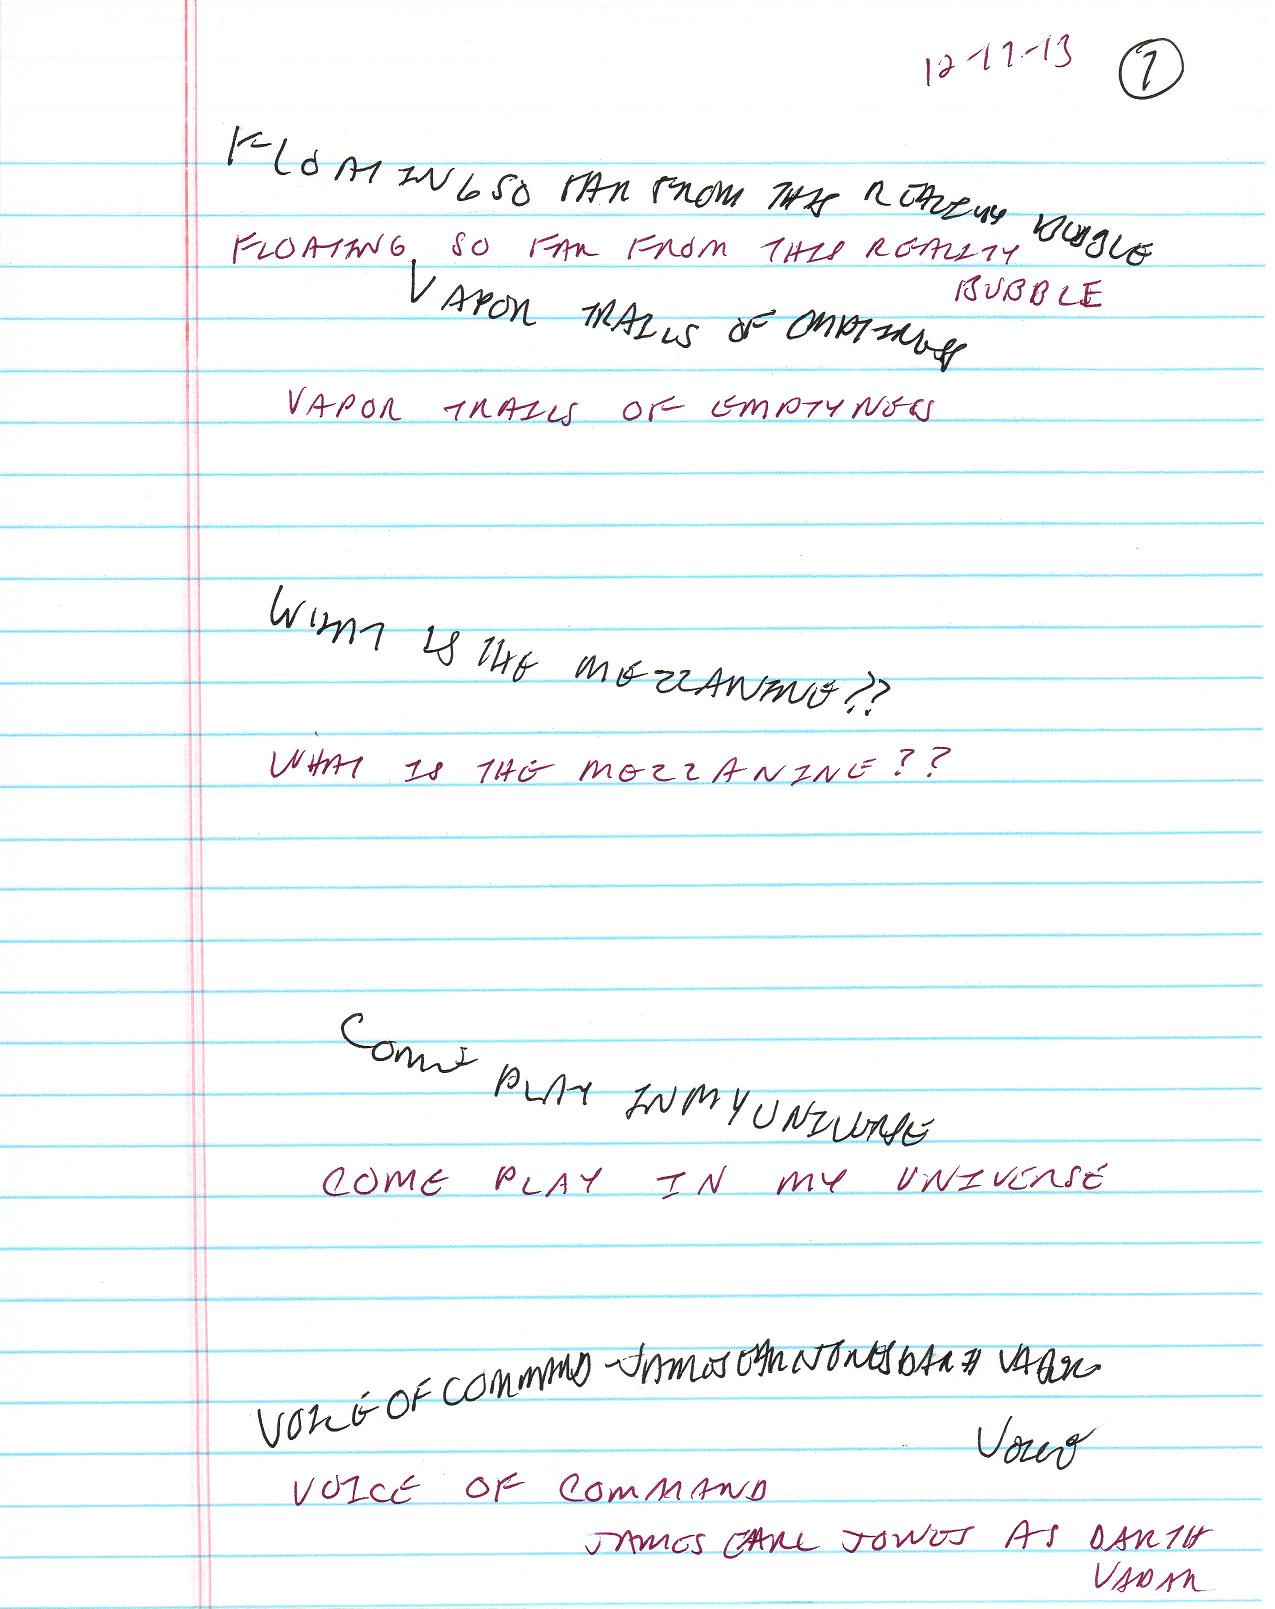 12-17-13 1
FLOATING SO FAR FROM THIS REALITY BUBBLE
FLOATING SO FAR FROM THIS REALITY
BUBBLE
VAPOR TRAILS OF EMPTINESS
VAPOR TRAILS OF EMPTYNESS
WHAT IS THE MEZZANINE??
WHAT IS THE MEZZANINE??
COME PLAY IN MY UNIVERSE
COME PLAY IN MY UNIVERSE
VOICE OF COMMAND - JAMES EARL JONES DARTH VADER
VOICE
VOICE OF COMMAND
JAMES EARL JONES AS DARTH
VADAR